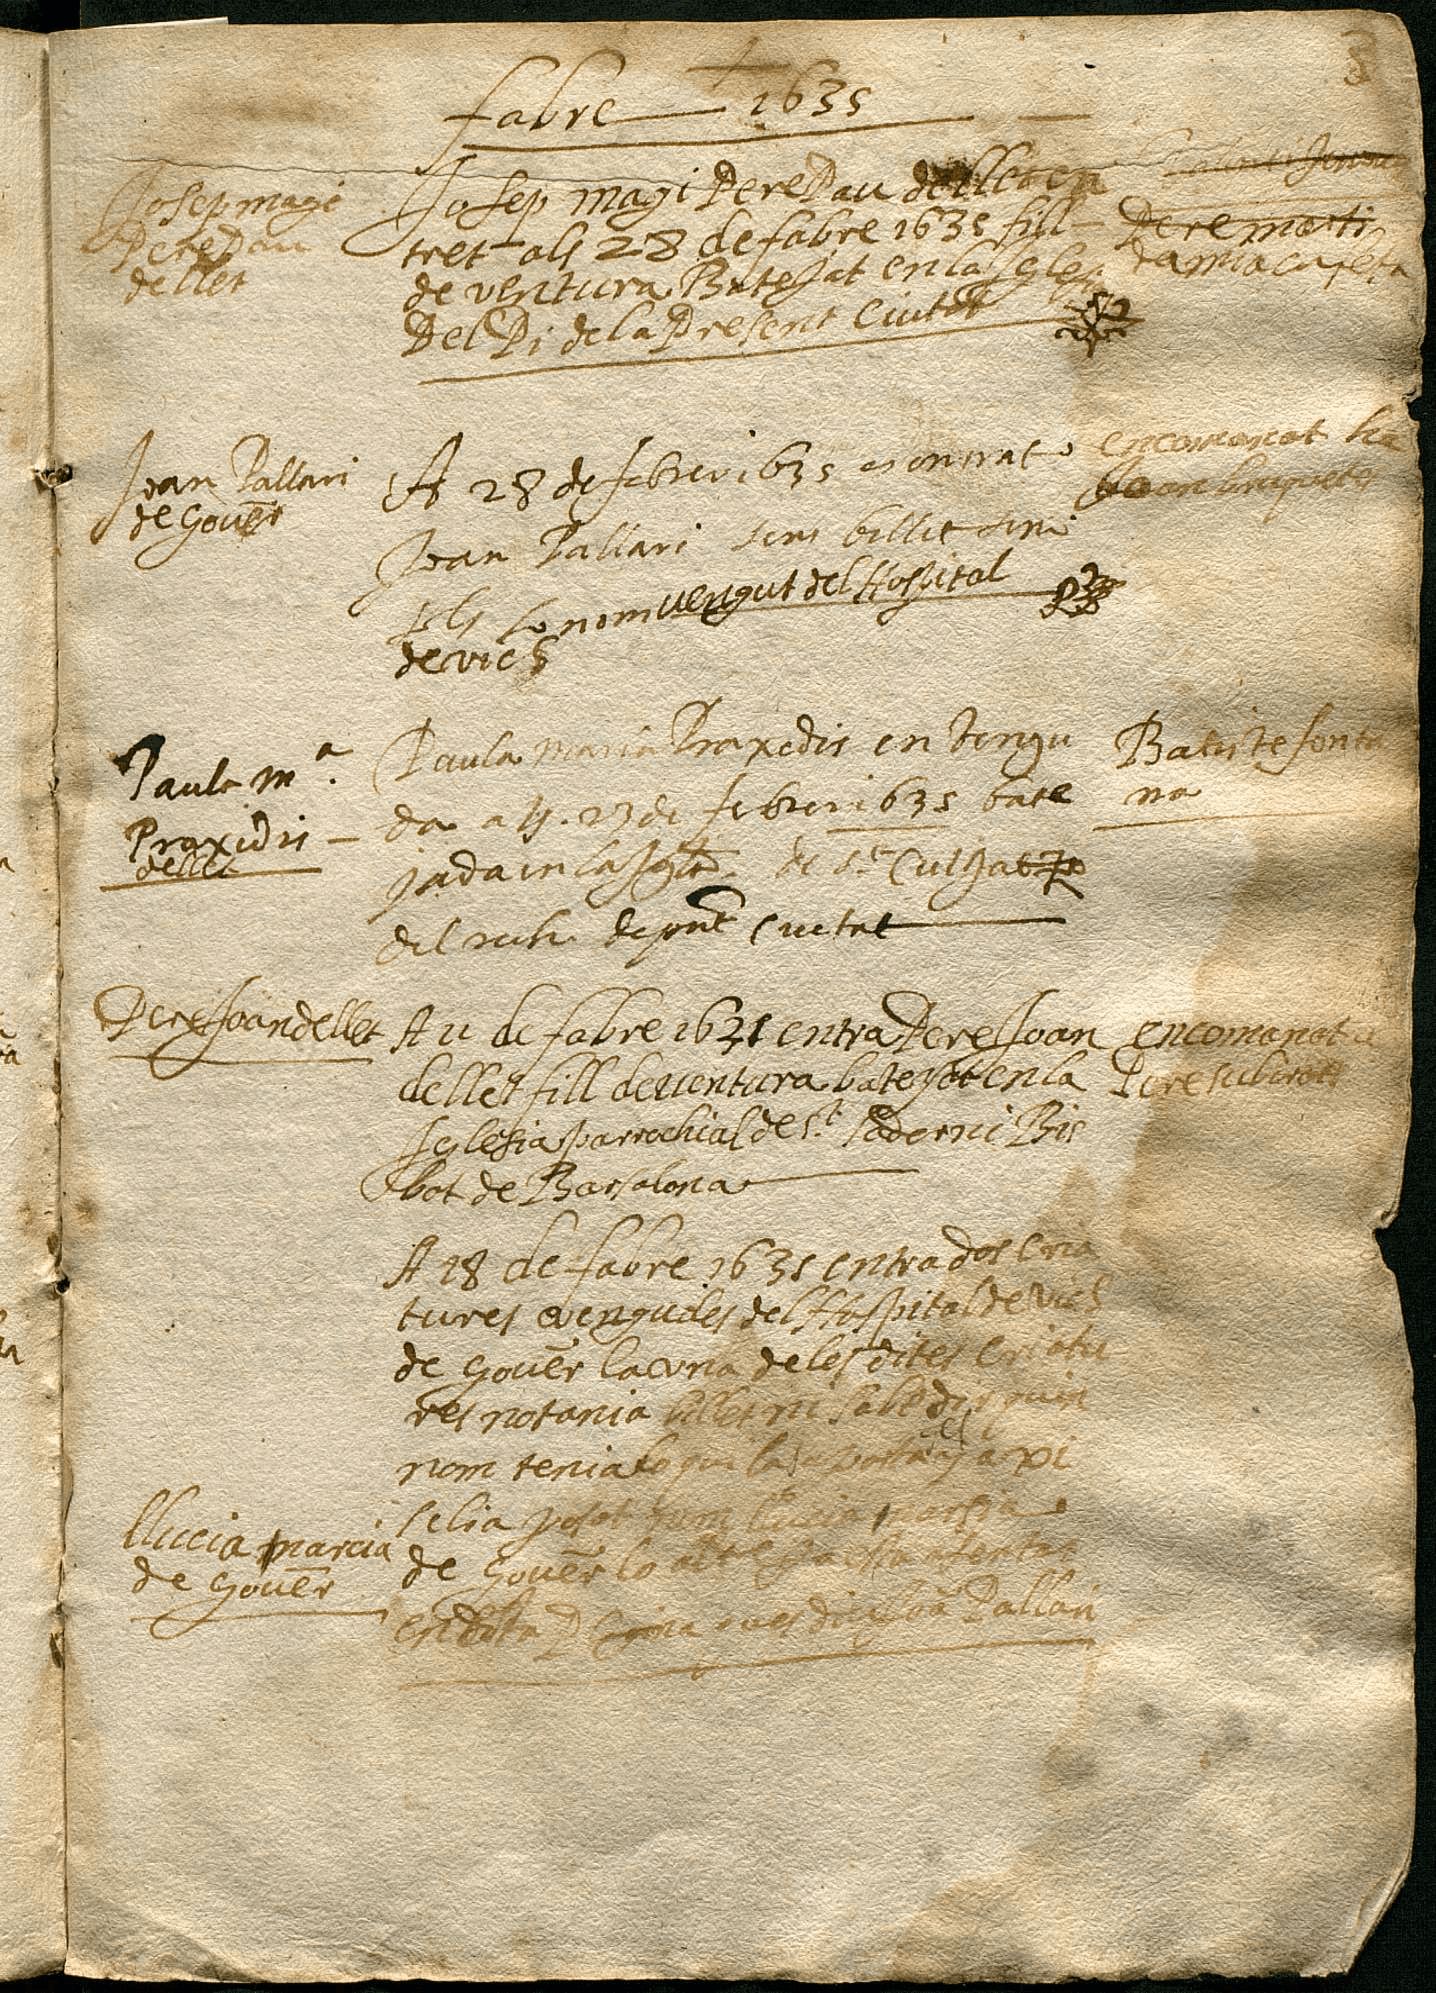 3
fabre 1635
Josep magi
Pere Pau
dellet
Josep magi Pere Pau dellet en
tret als 28 de fabre 1635 fill
de ventura Batejat en la Iglesi
Del Pi de la Present Ciutat
Pere marti
Joan Pallari
de Gouer
A 28 de febrer 1635 es entrat
Joan Pallari sens billet sino
lo nom vengut del Hospital
de vich
encomanat ha
Joan
Paula mª
Praxidis
dellet
Paula maria Praxedis en tengu
da als 27 de febrer 1635 bate
jada en la Iglª de St Culgat
del rech de pnt ciutat
Batiste fonta
na
Pere Joan dellet
A 11 de fabre 1635 entra Pere Joan
dellet fill de ventura batejat en la
Iglesia parrochial de St. Paderni Bis
bat de Barsalona
encomanat a
Pere subirats
A 18 de fabre 1635 entra dos cria
tures vengudes del Hospital de vich
de Gouer la vna de les dites criatu
res no tania billet ni sabe dir quin
nom tenia lo qui la aporta
posat nom llucia marsia
de Gouer lo altre
Joã Pallari
llucia marcia
de Gouer